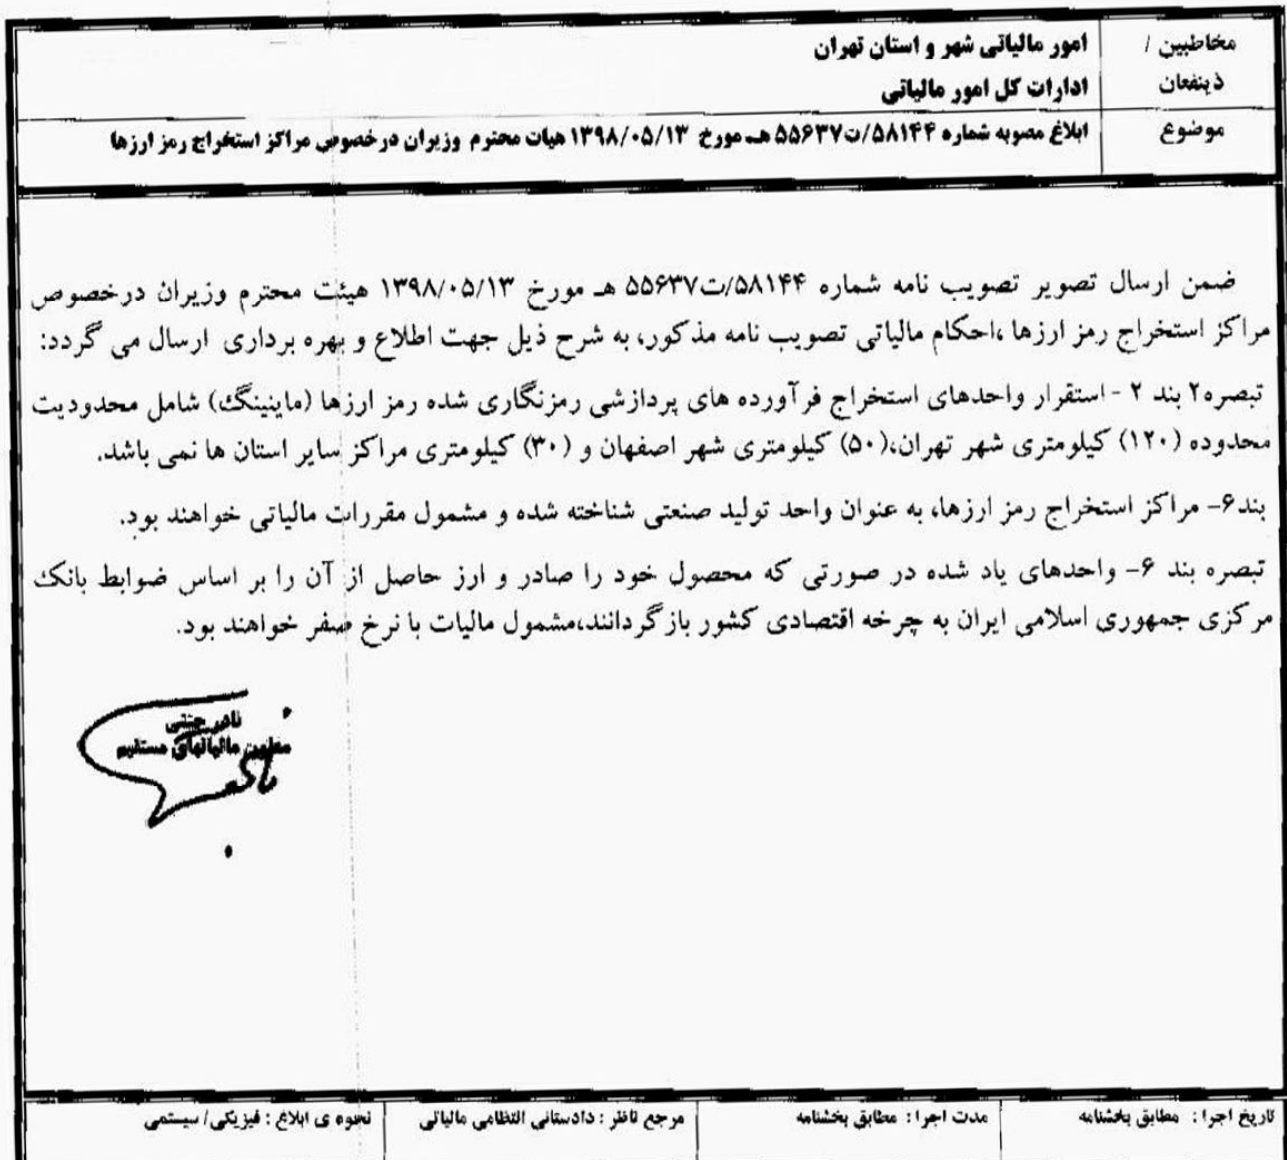 مخاطبین /
ذینفعان
امور مالیاتی شهر و استان تهران
ادارات کل امور مالیاتی
موضوع
ابلاغ مصوبه شماره ۵۸۱۴۴/ت۵۵۶۳۷ هـ مورخ ۱۳۹۸/۰۵/۱۳ هیات محترم وزیران درخصوص مراکز استخراج رمز ارزها
ضمن ارسال تصویر تصویب نامه شماره ۵۸۱۴۴/ت۵۵۶۳۷ هـ مورخ ۱۳۹۸/۰۵/۱۳ هیئت محترم وزیران درخصوص
مراکز استخراج رمز ارزها ،احکام مالیاتی تصویب نامه مذکور، به شرح ذیل جهت اطلاع و بهره برداری ارسال می گردد:
تبصره۲ بند ۲ - استقرار واحدهای استخراج فرآورده های پردازشی رمزنگاری شده رمز ارزها (ماینینگ) شامل محدودیت
محدوده (۱۲۰) کیلومتری شهر تهران،(۵۰) کیلومتری شهر اصفهان و (۳۰) کیلومتری مراکز سایر استان ها نمی باشد.
بند۶- مراکز استخراج رمز ارزها، به عنوان واحد تولید صنعتی شناخته شده و مشمول مقررات مالیاتی خواهند بود.
تبصره بند ۶- واحدهای یاد شده در صورتی که محصول خود را صادر و ارز حاصل از آن را بر اساس ضوابط بانک
مرکزی جمهوری اسلامی ایران به چرخه اقتصادی کشور بازگردانند،مشمول مالیات با نرخ صفر خواهند بود.
نادر جنتی
معاون مالیاتهای مستقیم
تاریخ اجرا : مطابق بخشنامه
مدت اجرا : مطابق بخشنامه
مرجع ناظر : دادستانی انتظامی مالیاتی
نحوه ی ابلاغ : فیزیکی/ سیستمی